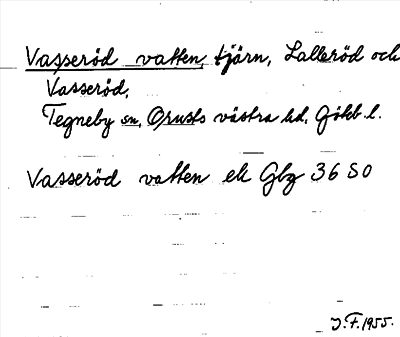 Vasseröd vatten, tjärn, Lalleröd och
Vasseröd,
Tegneby sn, Orusts västra hd, Gökb. l.
Vasseröd vatten ek Gbg 36 SO
J.F. 1955.